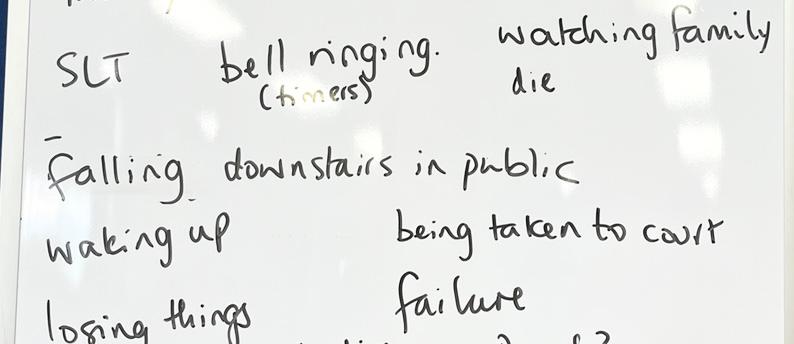 SLT bell ringing. watching family
(timers) die
falling downstairs in public
waking up being taken to court
losing things failure